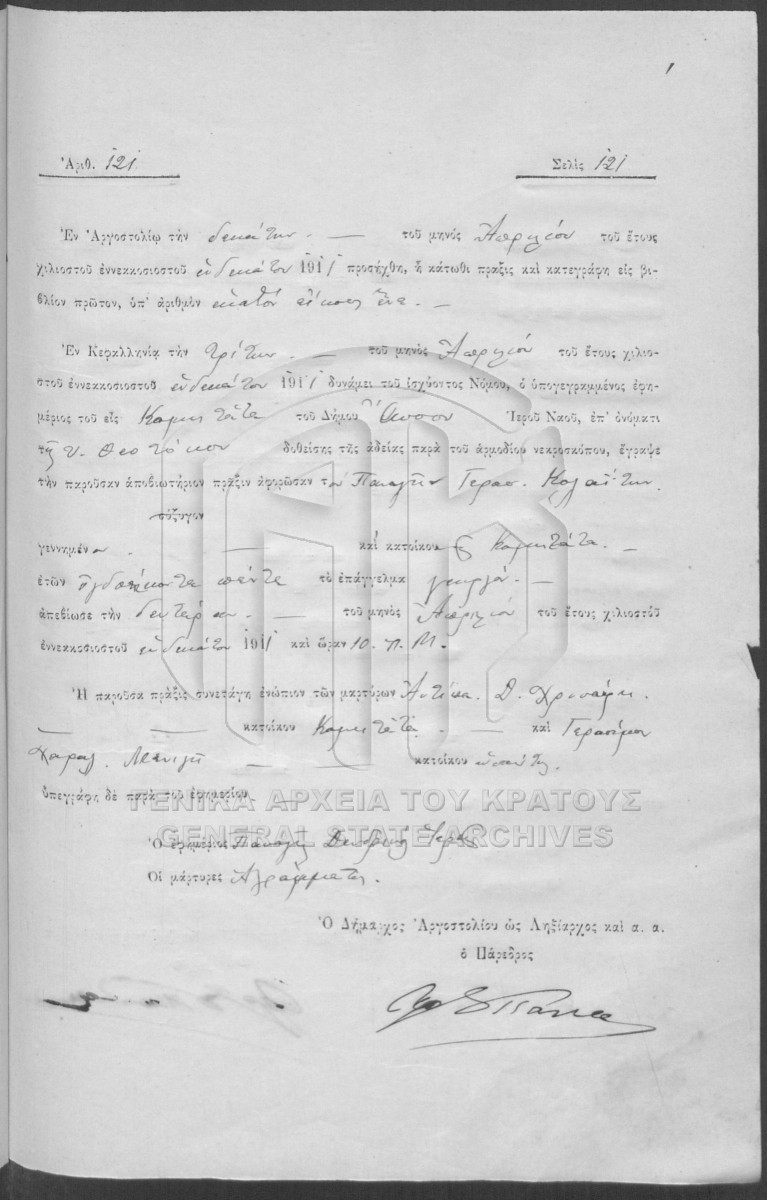 Ἀριθ. 121
Σελὶς 121
Ἐν Ἀργοστολίῳ τὴν δεκάτην — τοῦ μηνὸς Ἀπριλίου τοῦ ἔτους
χιλιοστοῦ ἐννεακοσιοστοῦ ἑνδεκάτου 1911 προσήχθη, ἡ κάτωθι πρᾶξις καὶ κατεγράφη εἰς βι-
βλίον πρῶτον, ὑπ' ἀριθμὸν ἑκατὸν εἴκοσι ἕνα. —
Ἐν Κεφαλληνίᾳ τὴν τρίτην. — τοῦ μηνὸς Ἀπριλίου τοῦ ἔτους χιλιο-
στοῦ ἐννεακοσιοστοῦ ἑνδεκάτου 1911 δυνάμει τοῦ ἰσχύοντος Νόμου, ὁ ὑπογεγραμμένος ἐφη-
μέριος τοῦ εἰς Κομητάτα τοῦ Δήμου Ἄσσου Ἱεροῦ Ναοῦ, ἐπ' ὀνόματι
τῆς Υ. Θεοτόκου δοθείσης τῆς ἀδείας παρὰ τοῦ ἁρμοδίου νεκροσκόπου, ἔγραψε
τὴν παροῦσαν ἀποβιωτήριον πρᾶξιν ἀφορῶσαν τὸν Παναγῆν Γερασ.
σύζυγον
γεννημένον — καὶ κατοίκου Κομητάτα. —
ἐτῶν ὀγδοήκοντα πέντε τὸ ἐπάγγελμα γεωργόν. —
ἀπεβίωσε τὴν δευτέραν. — τοῦ μηνὸς Ἀπριλίου τοῦ ἔτους χιλιοστοῦ
ἐννεακοσιοστοῦ ἑνδεκάτου 1911 καὶ ὥραν 10. π. μ.
Ἡ παροῦσα πρᾶξις συνετάγη ἐνώπιον τῶν μαρτύρων Δ.
— — κατοίκου Κομητάτα. — καὶ Γερασίμου
Χαραλ. — — κατοίκου
ὑπεγράφη δὲ παρὰ τοῦ ἐφημερίου. —
ΓΕΝΙΚΑ ΑΡΧΕΙΑ ΤΟΥ ΚΡΑΤΟΥΣ
GENERAL STATE ARCHIVES
Ὁ ἐφημέριος Παναγῆς Ἱερεὺς
Οἱ μάρτυρες Ἀγράμματοι.
Ὁ Δήμαρχος Ἀργοστολίου ὡς Ληξίαρχος καὶ α. α.
ὁ Πάρεδρος